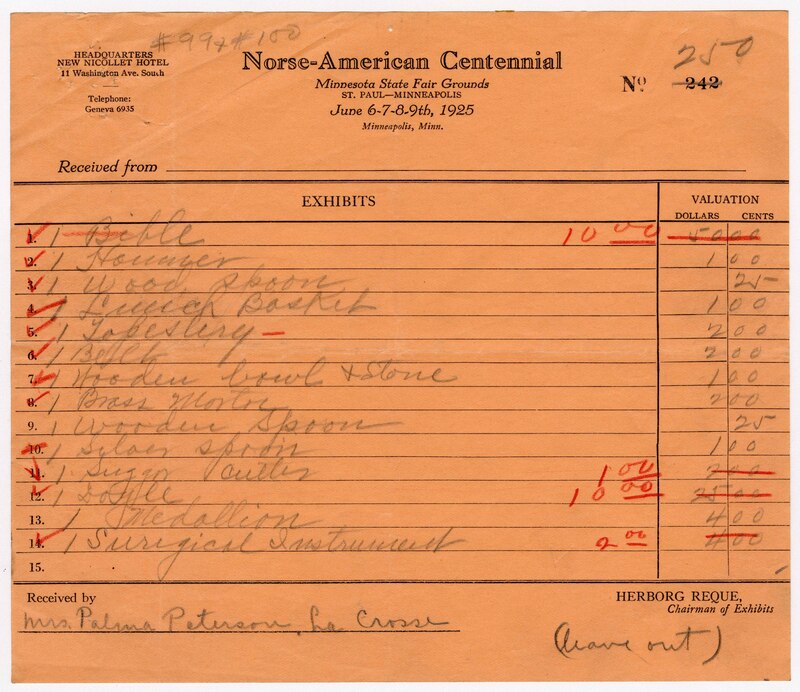 #99+#100
250
HEADQUARTERS
NEW NICOLLET HOTEL
11 Washington Ave. South
Telephone:
Geneva 6935
Norse-American Centennial
Minnesota State Fair Grounds
ST. PAUL—MINNEAPOLIS
June 6-7-8-9th, 1925
Minneapolis, Minn.
No 242
Received from
EXHIBITS VALUATION
DOLLARS CENTS
1. 1 Bible 10 00 50 00
2. 1 Hammer 1 00
3. 1 Wood spoon 25
4. 1 Lunch Basket 1 00
5. 1 Tapestery — 2 00
6. 1 Belt 2 00
7. 1 Wooden bowl + Stone 1 00
8. 1 Brass Morter 2 00
9. 1 Wooden Spoon 25
10. 1 Silver spoon 1 00
11. 1 Suger Cutter 1 00 2 00
12. 1 10 00 25 00
13. 1 Medallion 4 00
14. 1 Suregical Instrument 2 00 4 00
15.
Received by
Mrs. Palma Peterson, La Crosse
HERBORG REQUE,
Chairman of Exhibits
(leave out)